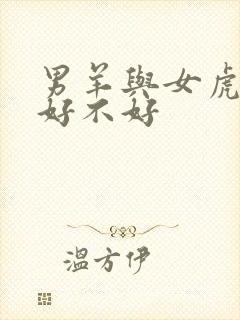 男羊與女虎
好不好
溫方伊